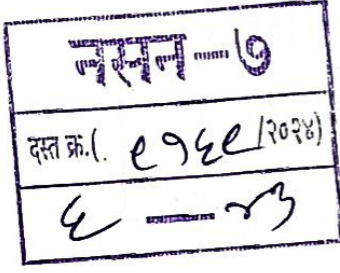 नसन - ७
दस्त क्र.(. ९१६९/२०२४)
६ — ४३